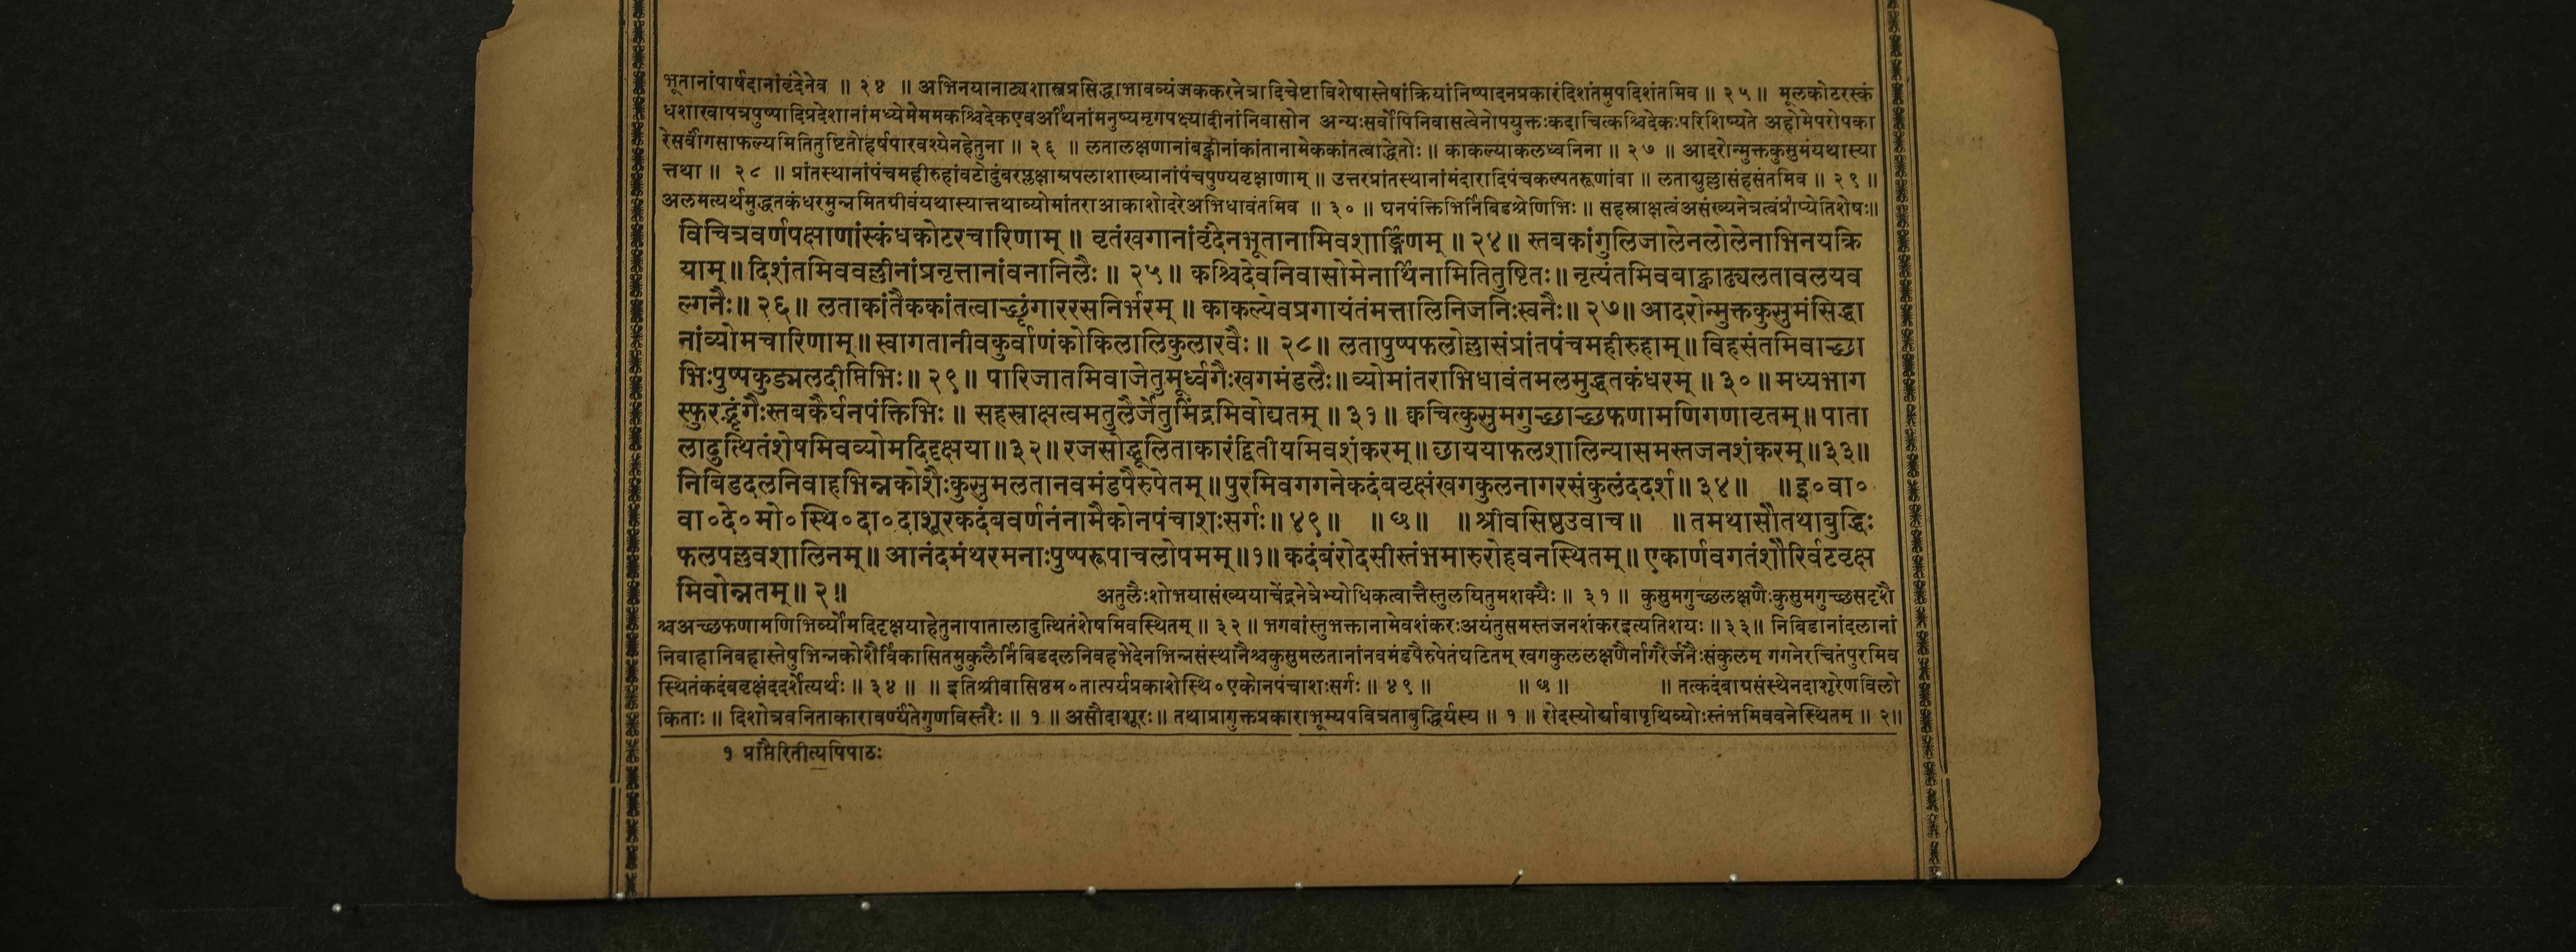 भूतानांपार्षदानांवृंदेनेव ॥ २४ ॥ अभिनयानाट्यशास्त्रप्रसिद्धाभावव्यंजककरनेत्रादिचेष्टाविशेषास्तेषांक्रियांनिष्पादनप्रकारंदिशंतमुपदिशंतमिव ॥ २५ ॥ मूलकोटरस्कं
धशाखापत्रपुष्पादिप्रदेशानांमध्येमेममकश्चिदेकएवअर्थिनांमनुष्यमृगपक्ष्यादीनांनिवासोन अन्यःसर्वोपिनिवासत्वेनोपयुक्तःकदाचित्कश्चिदेकःपरिशिष्यते अहोमेपरोपका
रेसर्वांगसाफल्यमितितुष्टितोहर्षपारवश्येनहेतुना ॥ २६ ॥ लतालक्षणानांबह्वीनांकांतानामेककांतत्वाद्धेतोः ॥ काकल्याकलध्वनिना ॥ २७ ॥ आदरोन्मुक्तकुसुमंयथास्या
त्तथा ॥ २८ ॥ प्रांतस्थानांपंचमहीरुहांवटोदुंबरप्लक्षाम्रपलाशाख्यानांपंचपुण्यवृक्षाणाम् ॥ उत्तरप्रांतस्थानांमंदारादिपंचकल्पतरूणांवा ॥ लताद्युल्लासंहसंतमिव ॥ २९ ॥
अलमत्यर्थमुद्धतकंधरमुन्नमितग्रीवंयथास्यात्तथाव्योमांतराआकाशोदरेअभिधावंतमिव ॥ ३० ॥ घनपंक्तिभिर्निबिडश्रेणिभिः ॥ सहस्राक्षत्वंअसंख्यनेत्रत्वंप्रांप्येतिशेषः॥
विचित्रवर्णपक्षाणांस्कंधकोटरचारिणाम् ॥ वृतंखगानांवृंदेनभूतानामिवशार्ङ्गिणम् ॥ २४॥ स्तबकांगुलिजालेनलोलेनाभिनयक्रि
याम् ॥ दिशंतमिववल्लीनांप्रनृत्तानांवनानिलैः ॥ २५॥ कश्चिदेवनिवासोमेनार्थिनामितितुष्टितः॥ नृत्यंतमिवबाह्वाढ्यलतावलयव
ल्गनैः॥ २६॥ लताकांतैककांतत्वाच्छृंगाररसनिर्भरम् ॥ काकल्येवप्रगायंतंमत्तालिनिजनिःस्वनैः॥ २७॥ आदरोन्मुक्तकुसुमंसिद्धा
नांव्योमचारिणाम्॥ स्वागतानीवकुर्वाणंकोकिलालिकुलारवैः॥ २८॥ लतापुष्पफलोल्लासंप्रांतपंचमहीरुहाम्॥ विहसंतमिवाच्छा
भिःपुष्पकुड्मलदीप्तिभिः॥ २९॥ पारिजातमिवाजेतुमूर्ध्वगैःखगमंडलैः॥ व्योमांतराभिधावंतमलमुद्धतकंधरम् ॥ ३०॥ मध्यभाग
स्फुरद्भृंगैःस्तबकैर्घनपंक्तिभिः ॥ सहस्राक्षत्वमतुलैर्जेतुमिंद्रमिवोद्यतम् ॥ ३१॥ क्वचित्कुसुमगुच्छाच्छफणामणिगणावृतम्॥ पाता
लादुत्थितंशेषमिवव्योमदिदृक्षया॥३२॥ रजसोद्धूलिताकारंद्वितीयमिवशंकरम्॥ छाययाफलशालिन्यासमस्तजनशंकरम्॥३३॥
निबिडदलनिवाहभिन्नकोशैःकुसुमलतानवमंडपैरुपेतम्॥ पुरमिवगगनेकदंबवृक्षंखगकुलनागरसंकुलंददर्श॥ ३४॥ ॥इ०वा०
वा०दे०मो०स्थि०दा०दाशूरकदंबवर्णनंनामैकोनपंचाशःसर्गः॥ ४९॥ ॥ ७॥ ॥श्रीवसिष्ठउवाच॥ ॥तमथासौतथाबुद्धिः
फलपल्लवशालिनम्॥ आनंदमंथरमनाःपुष्परूपाचलोपमम्॥१॥ कदंबंरोदसीस्तंभमारुरोहवनस्थितम्॥ एकार्णवगतंशौरिर्वटवृक्ष
मिवोन्नतम्॥ २॥
अतुलैःशोभयासंख्ययाचेंद्रनेत्रेभ्योधिकत्वात्तैस्तुलयितुमशक्यैः ॥ ३१ ॥ कुसुमगुच्छलक्षणैःकुसुमगुच्छसदृशै
श्चअच्छफणामणिभिर्व्योमदिदृक्षयाहेतुनापातालादुत्थितंशेषमिवस्थितम् ॥ ३२ ॥ भगवांस्तुभक्तानामेवशंकरःअयंतुसमस्तजनशंकरइत्यतिशयः ॥३३॥ निबिडानांदलानां
निवाहानिवहास्तेषुभिन्नकोशैर्विकासितमुकुलैर्निबिडदलनिवहभेदेनभिन्नसंस्थानैश्चकुसुमलतानांनवमंडपैरुपेतंघटितम् खगकुललक्षणैर्नागरैर्जनैःसंकुलम् गगनेरचितंपुरमिव
स्थितंकदंबवृक्षंददर्शेत्यर्थः ॥ ३४ ॥ ॥ इतिश्रीवासिष्ठम०तात्पर्यप्रकाशेस्थि०एकोनपंचाशःसर्गः ॥ ४९ ॥ ॥ ७ ॥ ॥ तत्कदंबाग्रसंस्थेनदाशूरेणविलो
किताः ॥ दिशोत्रवनिताकारावर्ण्यतेगुणविस्तरैः ॥ १ ॥ असौदाशूरः॥ तथाप्रागुक्तप्रकाराभूम्यपवित्रताबुद्धिर्यस्य ॥ १ ॥ रोदस्योर्द्यावापृथिव्योःस्तंभमिववनेस्थितम् ॥ २॥
१ प्राप्तैरितीत्यपिपाठः